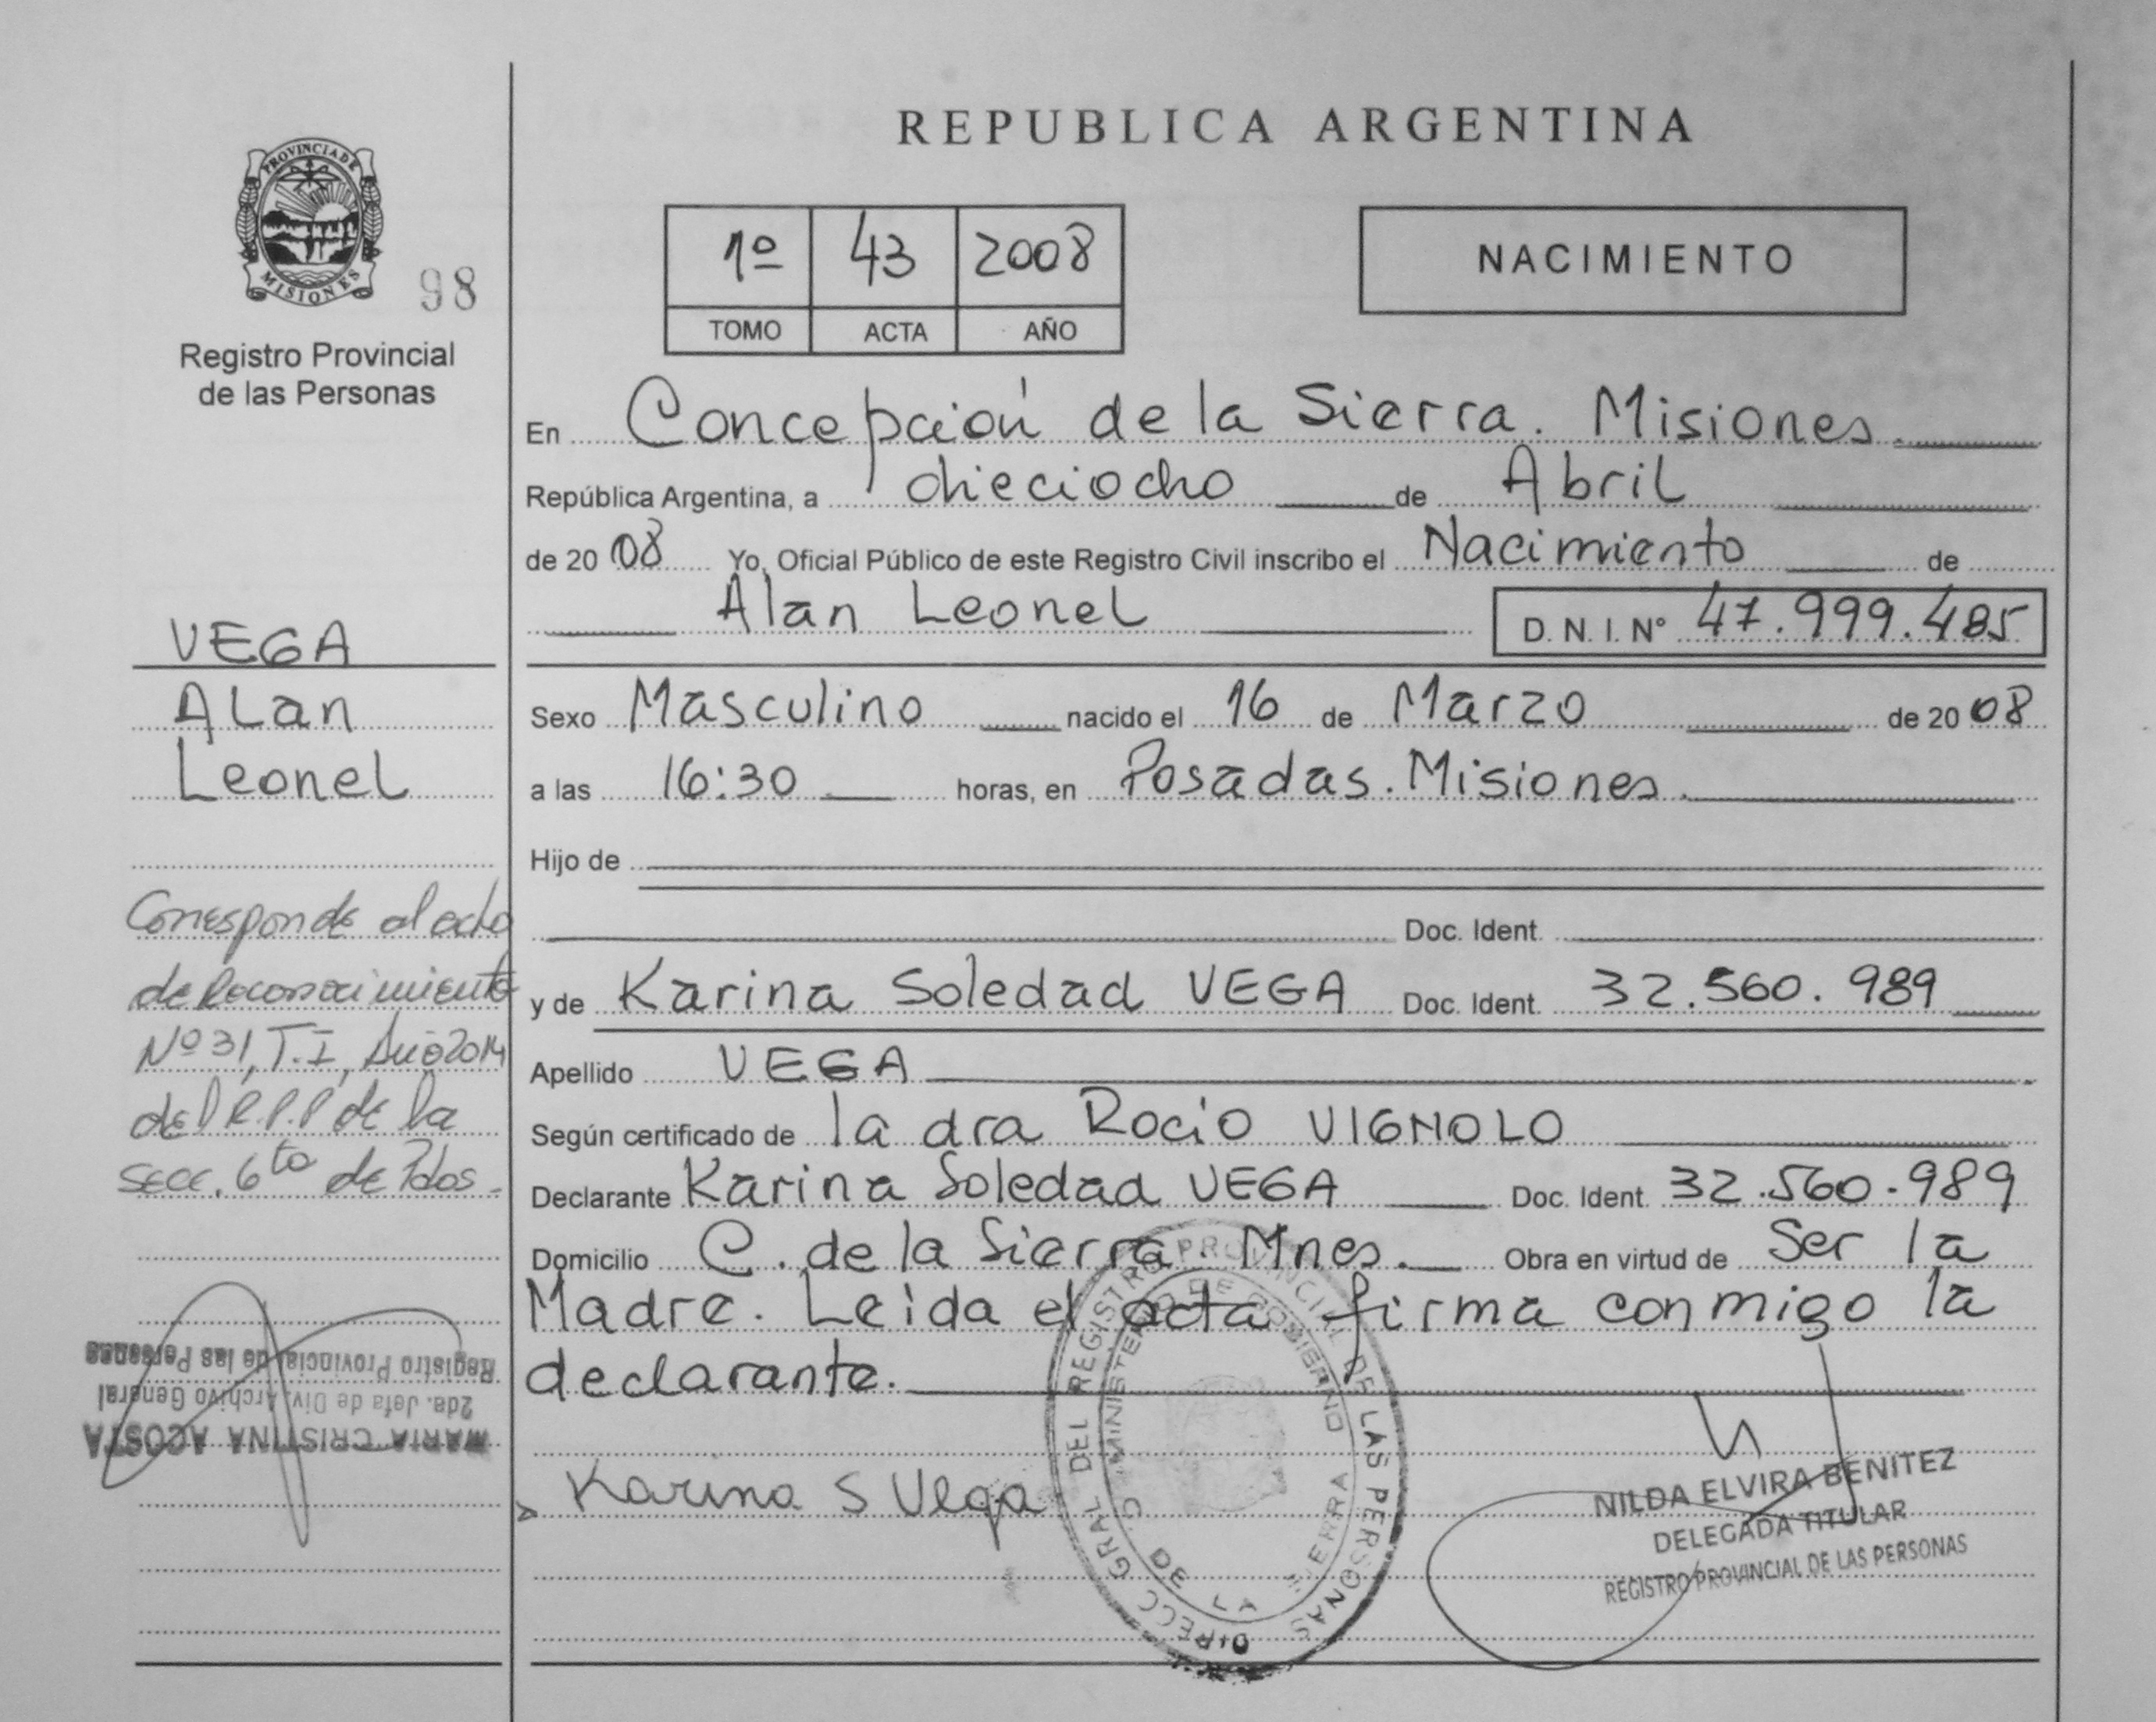 REPUBLICA ARGENTINA
PROVINCIA DE
MISIONES
98
Registro Provincial
de las Personas
1º 43 2008
TOMO ACTA AÑO
NACIMIENTO
En Concepción de la Sierra. Misiones.
República Argentina, a dieciocho de Abril
de 2008 Yo, Oficial Público de este Registro Civil inscribo el Nacimiento de
Alan Leonel D. N. I. Nº 47.999.485
VEGA
Alan
Leonel
Sexo Masculino nacido el 16 de Marzo de 2008
a las 16:30 horas, en Posadas. Misiones.
Hijo de
Doc. Ident.
y de Karina Soledad VEGA Doc. Ident. 32.560.989
Apellido VEGA
Según certificado de la dra Rocio VIGNOLO
Declarante Karina Soledad VEGA Doc. Ident. 32.560.989
Domicilio C. de la Sierra. Mnes. Obra en virtud de Ser la
Madre. Leida el acta firma conmigo la
declarante.
Corresponde al acta
de Reconocimiento
Nº 31, T. I, Año 2014
del R.P.P de la
secc. 6ta de Pdas.
MARIA CRISTINA ACOSTA
2da. Jefa de Div. Archivo General
Registro Provincial de las Personas
Karina S Vega
DIRECC GRAL DEL REGISTRO PROVINCIAL DE LAS PERSONAS
MINISTERIO DE GOBIERNO
C DE LA SIERRA
NILDA ELVIRA BENITEZ
DELEGADA TITULAR
REGISTRO PROVINCIAL DE LAS PERSONAS